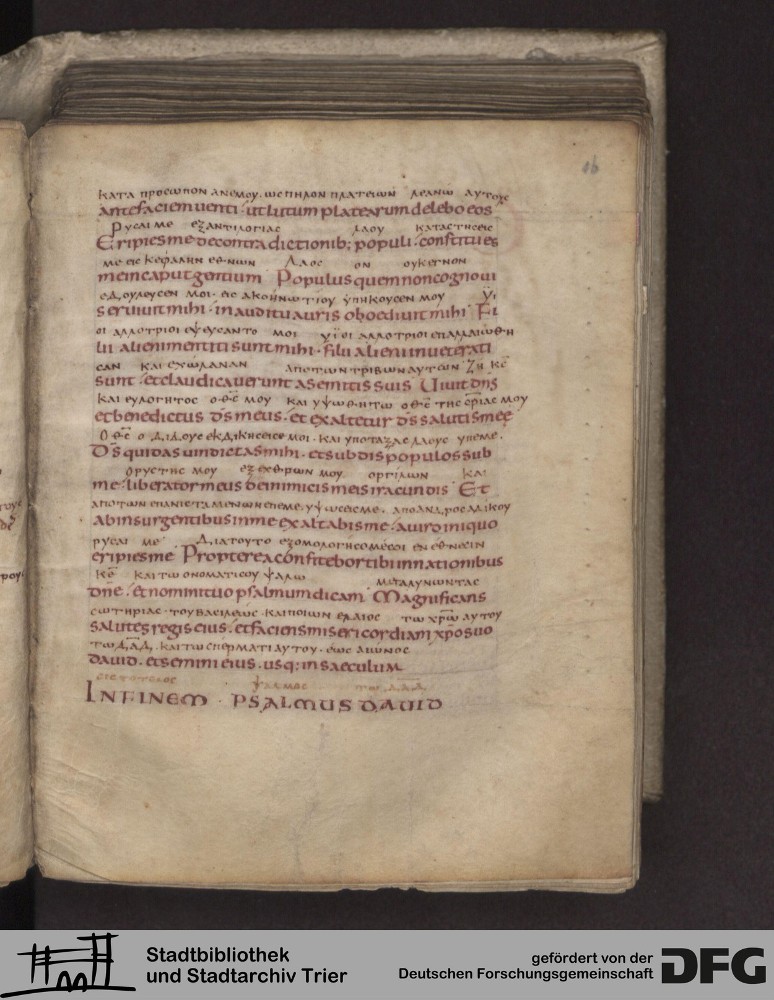 16
ΚΑΤΑ ΠΡΟCΩΠΟΝ ΑΝΕΜΟΥ. ΩC ΠΗΛΟΝ ΠΛΑΤΕΙΩΝ ΛΕΑΝΩ ΑΥΤΟΥC
ante faciem uenti · ut lutum platearum delebo eos
ΡΥCΑΙ ΜΕ ΕΞ ΑΝΤΙΛΟΓΙΑC ΛΑΟΥ ΚΑΤΑCΤΗCΕΙC
Eripies me de contradictionib; populi · constitues
ΜΕ ΕΙC ΚΕΦΑΛΗΝ ΕΘΝΩΝ ΛΑΟC ΟΝ ΟΥΚ ΕΓΝΟΝ
me in caput gentium Populus quem non cognoui
ΕΔΟΥΛΕΥCΕΝ ΜΟΙ · ΕΙC ΑΚΟΗΝ ΩΤΙΟΥ ΥΠΗΚΟΥCΕΝ ΜΟΥ ΥΙ
seruiuit mihi · in auditu auris oboediuit mihi · Fi
ΟΙ ΑΛΛΟΤΡΙΟΙ ΕΨΕΥCΑΝΤΟ ΜΟΙ ΥΙΟΙ ΑΛΛΟΤΡΙΟΙ ΕΠΑΛΑΙΩΘΗ
lii alieni mentiti sunt mihi · filii alieni inueterati
CΑΝ ΚΑΙ ΕΧΩΛΑΝΑΝ ΑΠΟ ΤΩΝ ΤΡΙΒΩΝ ΑΥΤΩΝ ΖΗ ΚC
sunt · et claudicauerunt a semitis suis Uiuit dns
ΚΑΙ ΕΥΛΟΓΗΤΟC Ο ΘC ΜΟΥ ΚΑΙ ΥΨΩΘΗΤΩ Ο ΘC ΤΗC CΡΙΑC ΜΟΥ
et benedictus ds meus · et exaltetur ds salutis meę
Ο ΘC Ο ΔΙΔΟΥC ΕΚΔΙΚΗCΕΙC ΜΟΙ · ΚΑΙ ΥΠΟΤΑΞΑC ΛΑΟΥC ΥΠ ΕΜΕ ·
Ds qui das uindictas mihi · et subdis populos sub
ΟΡΥCΤΗC ΜΟΥ ΕΞ ΕΧΘΡΩΝ ΜΟΥ ΟΡΓΙΛΩΝ ΚΑΙ
me · liberator meus de inimicis meis iracundis · Et
ΑΠΟ ΤΩΝ ΕΠΑΝΙCΤΑΜΕΝΩΝ ΕΠ ΕΜΕ. ΥΨΩCΕΙC ΜΕ. ΑΠΟ ΑΝΔΡΟC ΑΔΙΚΟΥ
ab insurgentibus in me exaltabis me · a uiro iniquo
ΡΥCΑΙ ΜΕ ΔΙΑ ΤΟΥΤΟ ΕΞΟΜΟΛΟΓΗCΟΜΕ CΟΙ ΕΝ ΕΘΝΕCΙΝ
eripies me Propterea confitebor tibi in nationibus
ΚΕ ΚΑΙ ΤΩ ΟΝΟΜΑΤΙ CΟΥ ΨΑΛΩ ΜΕΓΑΛΥΝΩΝ ΤΑC
dne · et nomini tuo psalmum dicam · Magnificans
CΩΤΗΡΙΑC · ΤΟΥ ΒΑCΙΛΕΩC · ΚΑΙ ΠΟΙΩΝ ΕΛΑΙΟC ΤΩ ΧΡΩ ΑΥΤΟΥ
salutes regis eius · et faciens misericordiam xpo suo
ΤΩ ΔΑΔ, ΚΑΙ ΤΩ CΠΕΡΜΑΤΙ ΑΥΤΟΥ · ΕΩC ΑΙΩΝΟC
dauid · et semini eius · usq; in saeculum
ΕΙC ΤΟ ΤΕΛΟC ΨΑΛΜΟC ΤΟΥ ΔΑΔ
IN FINEM · PSALMUS DAUID
Stadtbibliothek
und Stadtarchiv Trier
gefördert von der
Deutschen Forschungsgemeinschaft
DFG